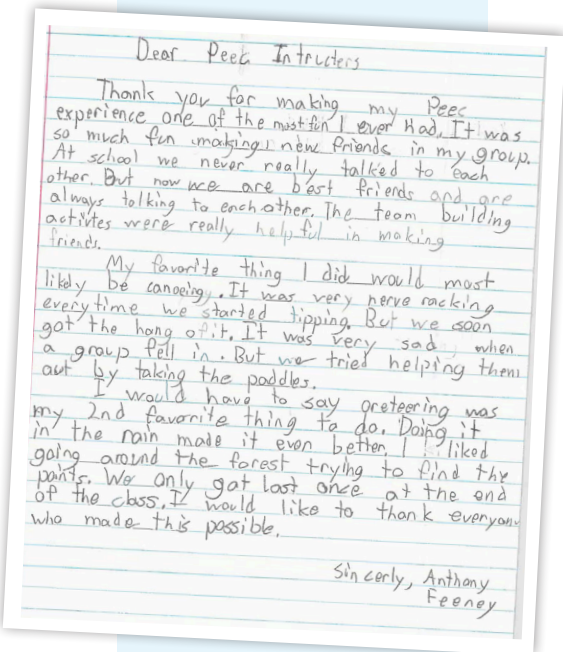 Dear Peec Intructers
Thank you for making my Peec
experience one of the most fun I ever Had. It was
so much fun making new friends in my group.
At school we never really talked to each
other. But now we are best friends and are
always talking to each other. The team building
activtes were really helpful in making
friends.
My favorite thing I did would most
likely be canoeing. It was very nerve racking
everytime we started tipping. But we soon
got the hang of it. It was very sad when
a group fell in. But we tried helping them
out by taking the paddles.
I would have to say oreteering was
my 2nd favorite thing to do. Doing it
in the rain made it even better. I liked
going around the forest trying to find the
points. We only got lost once at the end
of the class. I would like to thank everyone
who made this possible.
Sincerly, Anthony
Feeney